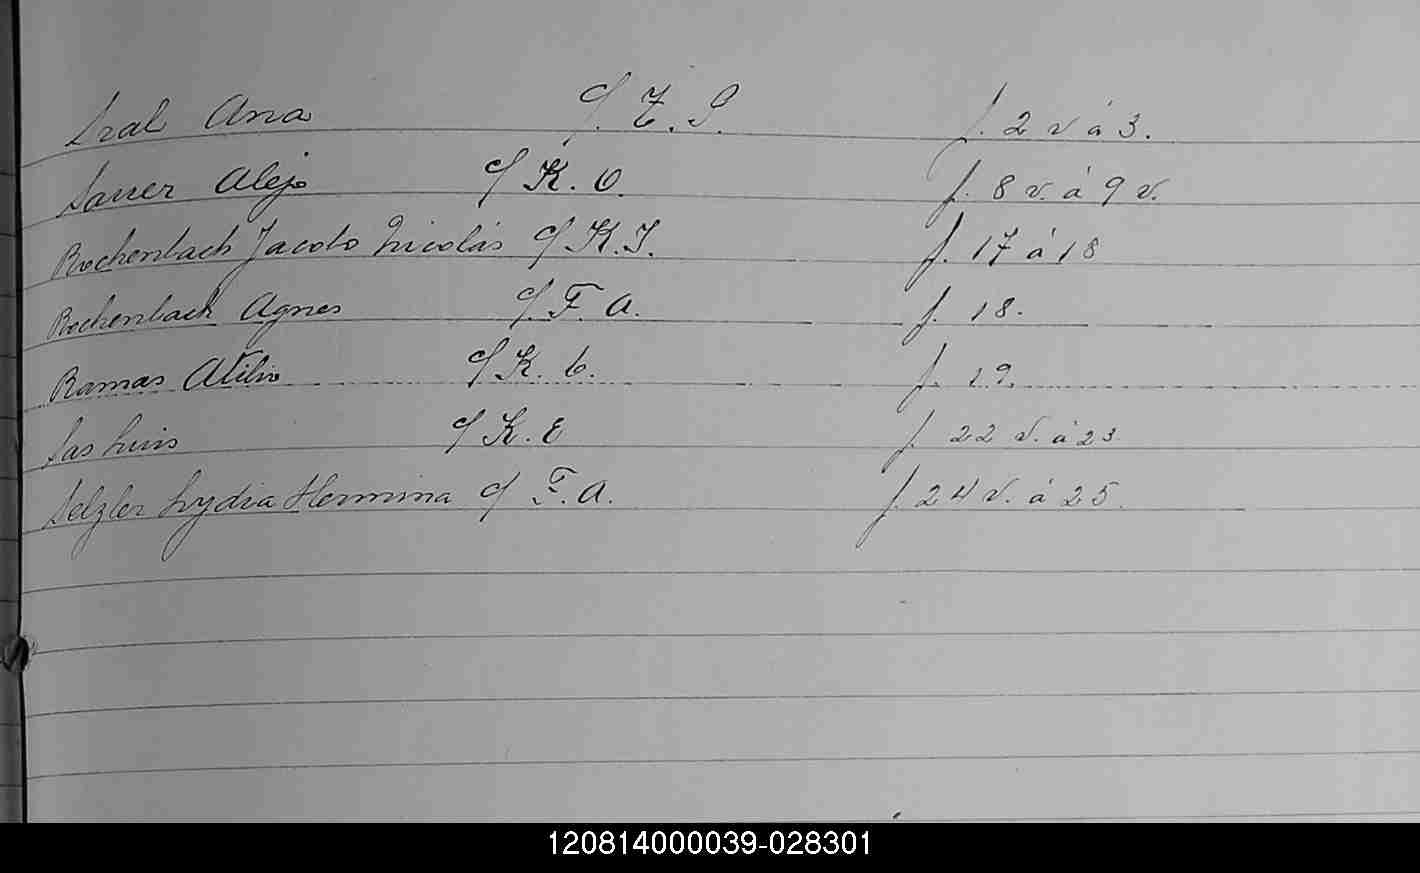 Sral Ana c/ T. S. f. 2 v á 3.
Sauer Alejo c/ K. O. f. 8 v. á 9 v.
Rockenbach Jacobo Nicolás c/ K. J. f. 17 á 18
Rockenbach Agnes c/ F. A. f. 18.
Ramas Atilio c/ K. C. f. 19.
Sas Luis c/ K. E f. 22 v. á 23
Selzler Lydia Hermina c/ F. A. f. 24 v. á 25.
120814000039-028301